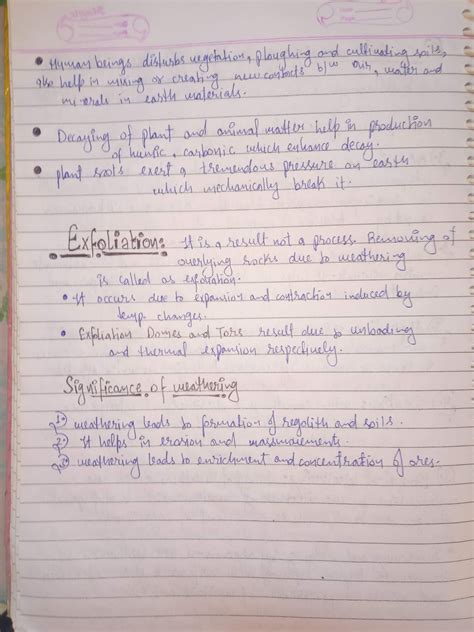 • Human beings disturbs vegetation, ploughing and cultivating soils,
also help in mixing or creating new contacts b/w air, water and
minerals in earth materials.
• Decaying of plant and animal matter help in production
of humic, carbonic which enhance decay.
• plant roots exert a tremendous pressure on earth
which mechanically break it.
• Exfoliation: It is a result not a process. Removing of
overlying rocks due to weathering
is called as exfoliation.
• It occurs due to expansion and contraction induced by
temp. changes.
• Exfoliation Domes and Tors result due to unloading
and thermal expansion respectively.
Significance of weathering
1. weathering leads to formation of regolith and soils.
2. It helps in erosion and massmovements.
3. weathering leads to enrichment and concentration of ores.